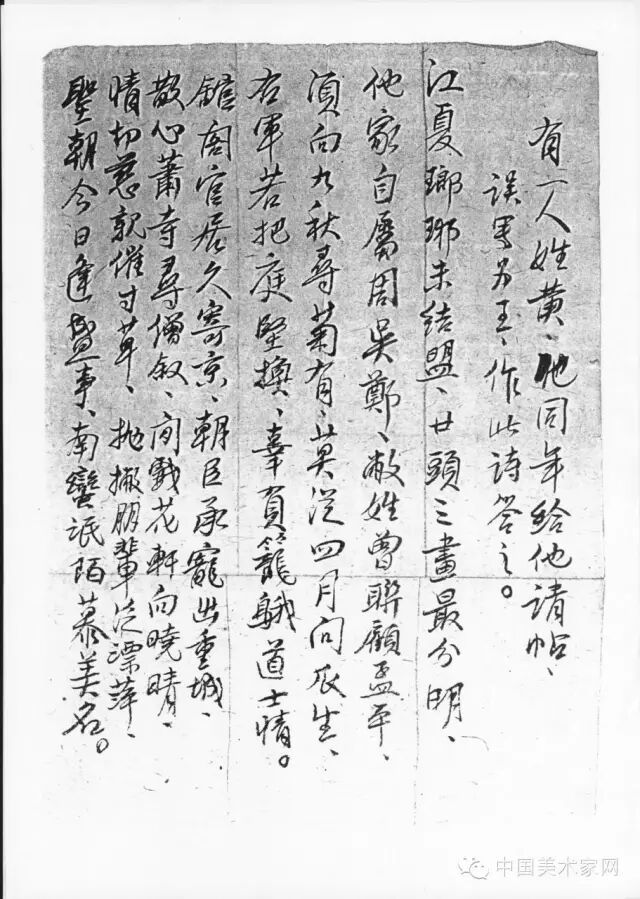 有一人姓黄、他同年给他請帖、
误写为王、作此詩答之。
江夏瑯琊未结盟、廿頭三畫最分明、
他家自屬周吴鄭、敝姓曾聯顧孟平、
须向九秋尋菊有、莫從四月问辰生、
右軍若把庭堅換、辜負籠鵝道士情。
館阁官居久寄京、朝臣承寵出重城、
散心蕭寺尋僧叙、闲戲花軒向曉晴、
情切慈親催寸草、抛撇朋輩泛漂萍、
聖朝今日逢盛事、南蠻氓陌慕美名。
中国美术家网